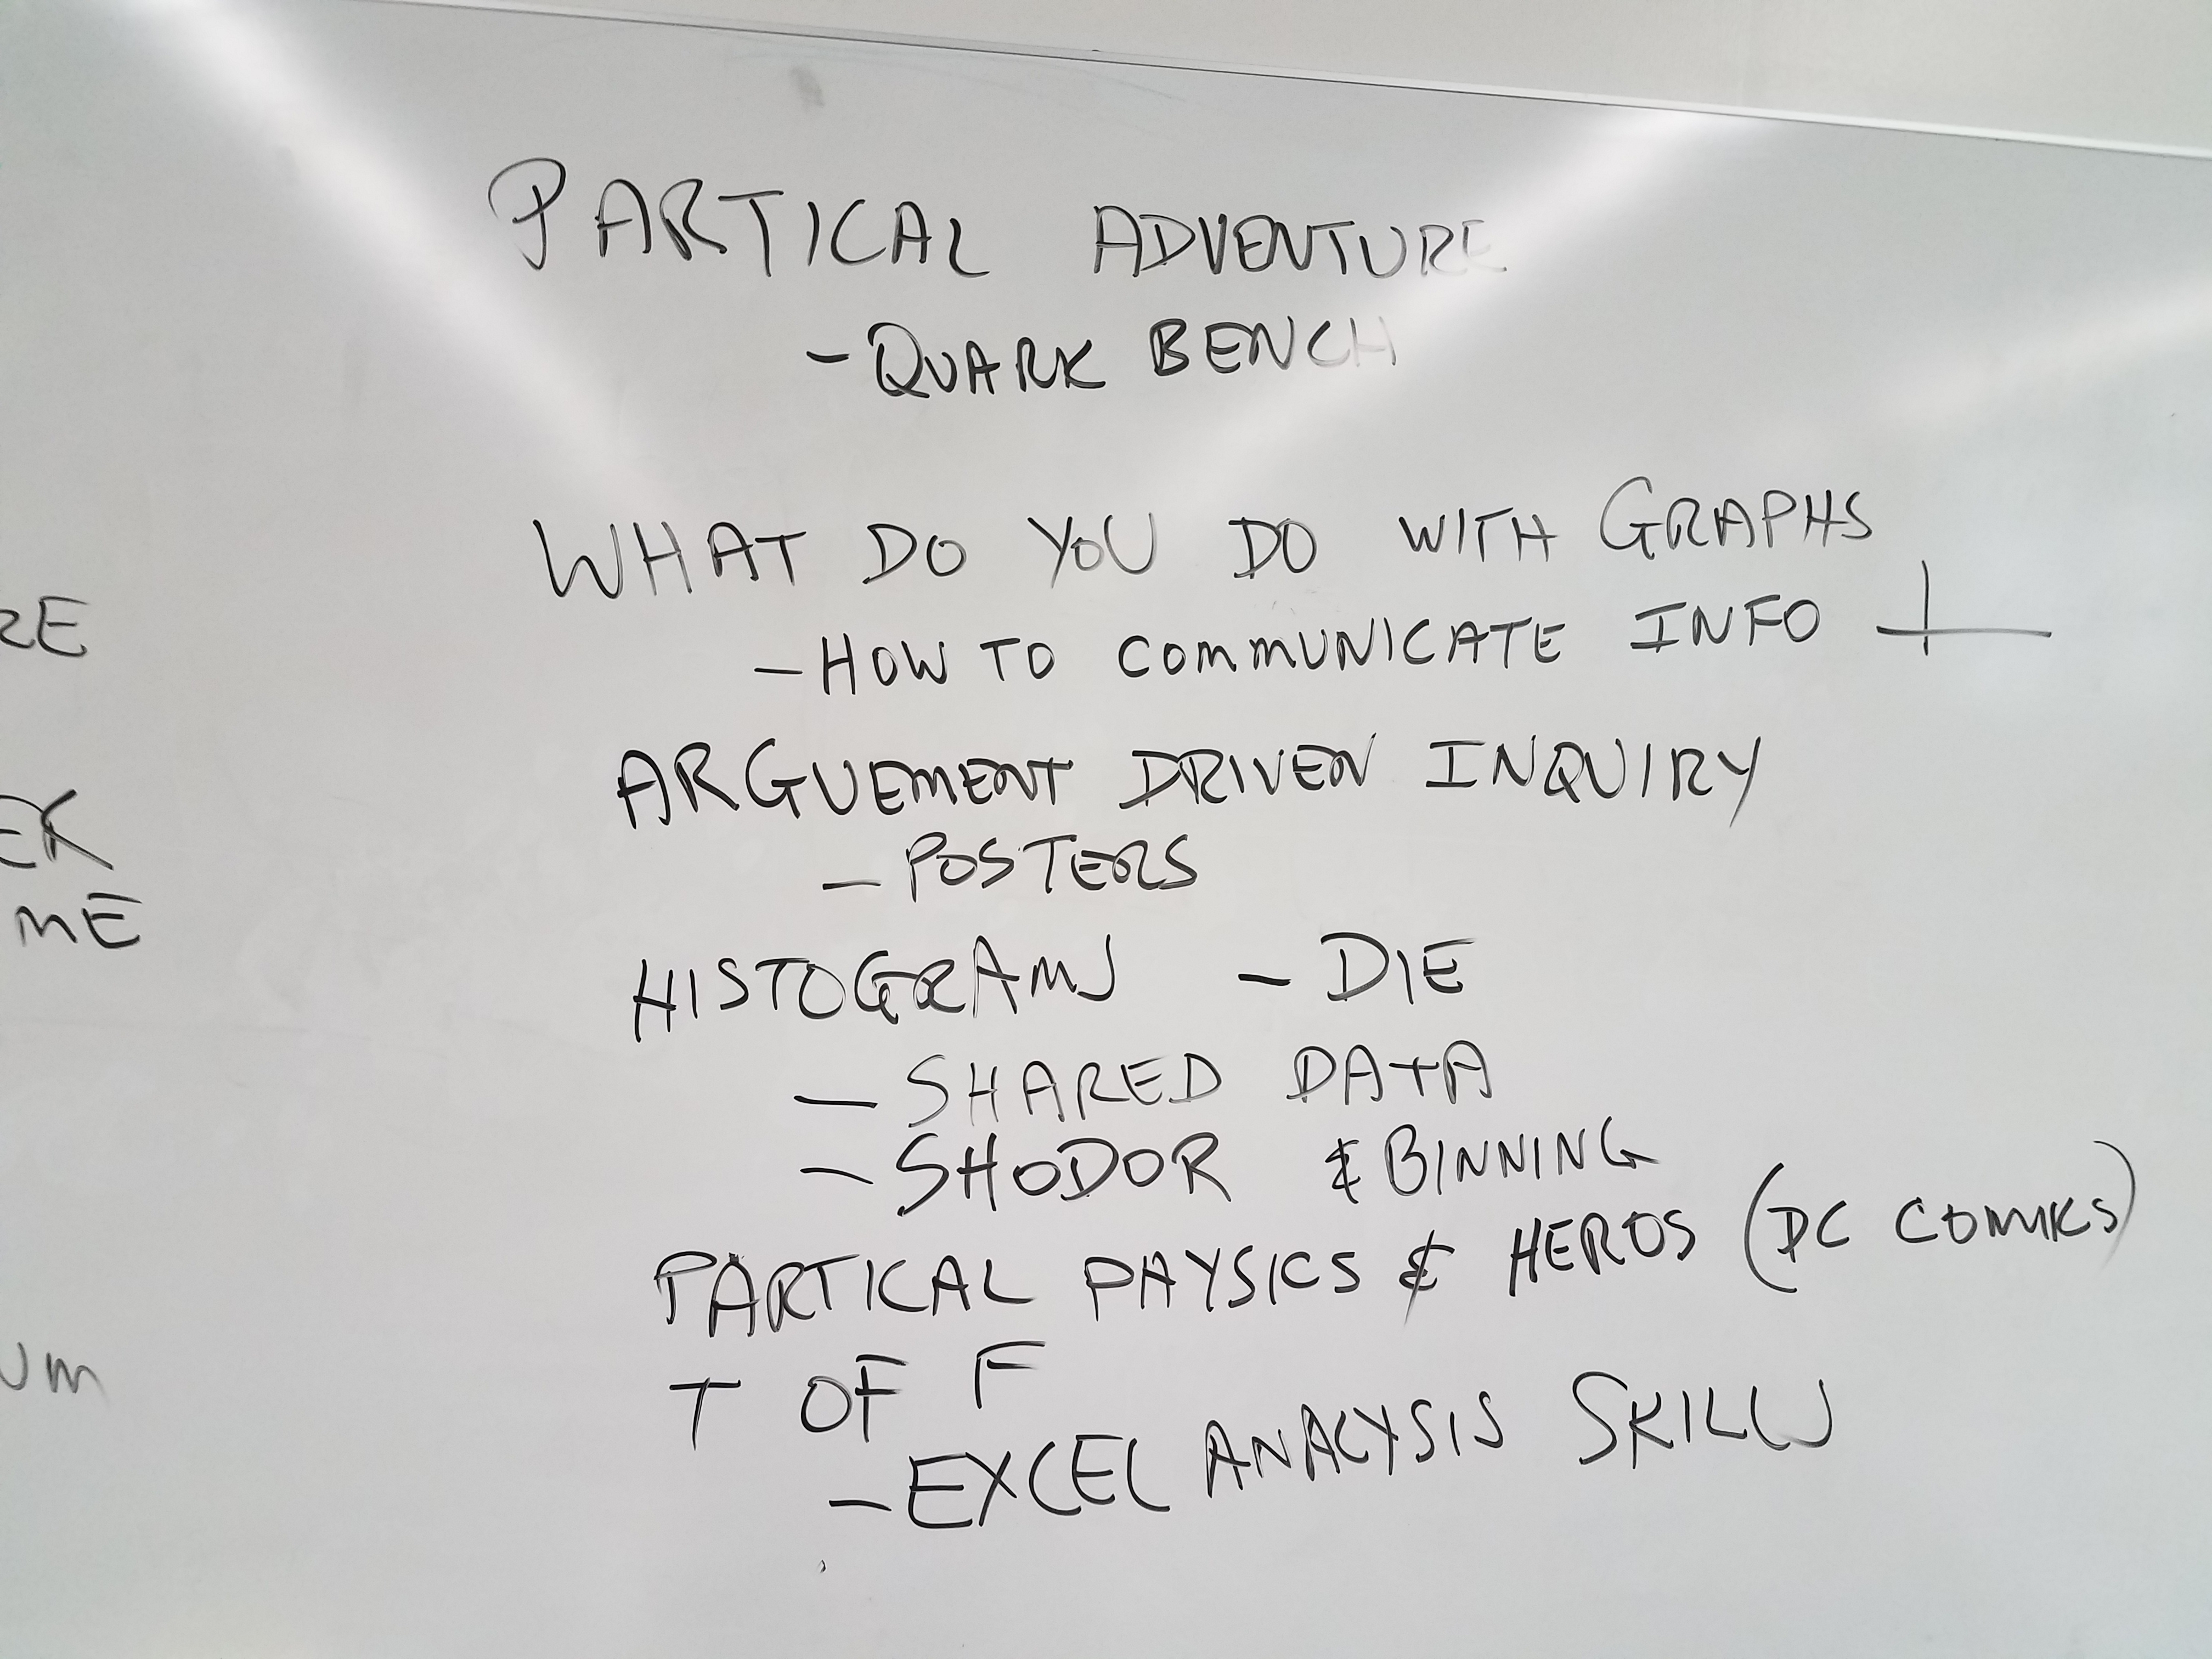 PARTICAL ADVENTURE
- QUARK BENCH
WHAT DO YOU DO WITH GRAPHS
- HOW TO COMMUNICATE INFO
ARGUEMENT DRIVEN INQUIRY
- POSTERS
HISTOGRAMS - DIE
- SHARED DATA
- SHODOR & BINNING
PARTICAL PHYSICS & HEROS (DC COMICS)
T OF F
- EXCEL ANALYSIS SKILLS
RE
ER
ME
UM